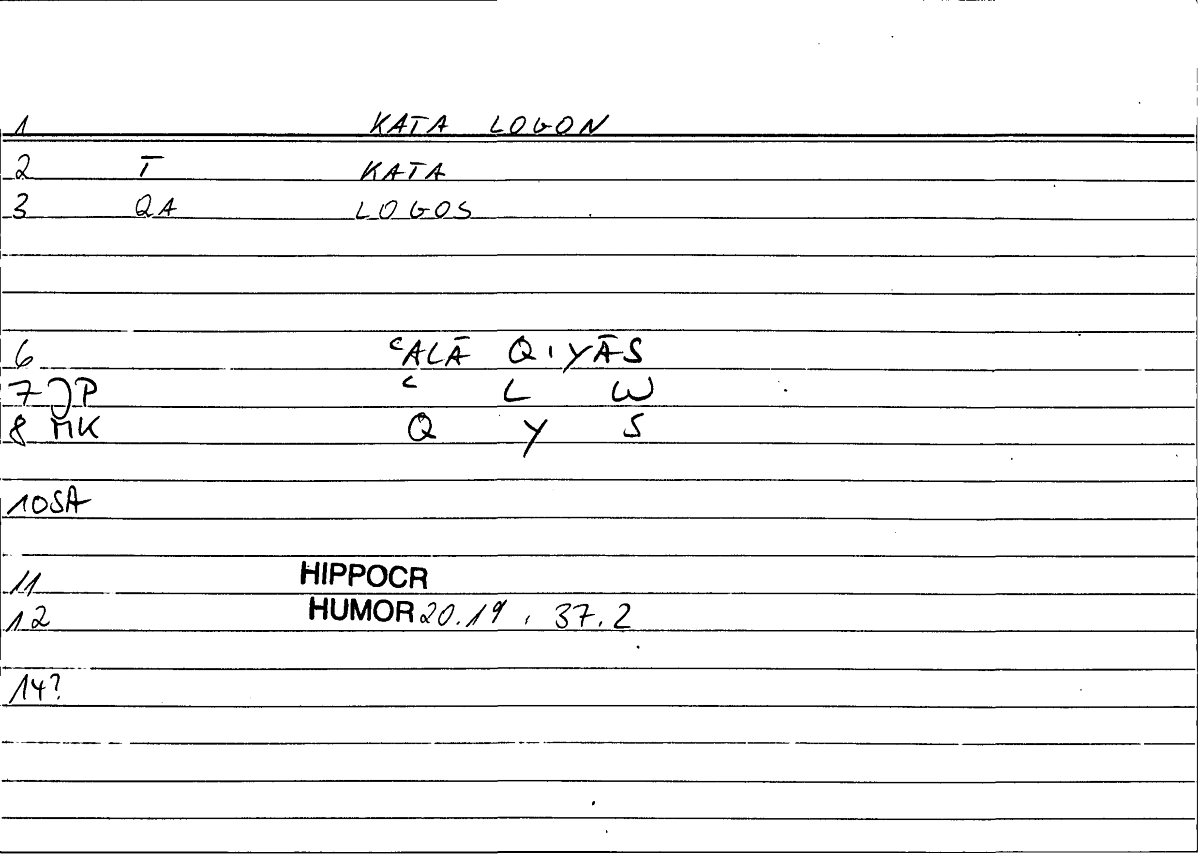 1 KATA LOGON
2 T KATA
3 QA LOGOS
6 ʿALĀ QIYĀS
7 JP ʿ L W
8 MK Q Y S
10 SA
11 HIPPOCR
12 HUMOR 20.19, 37.2
14?